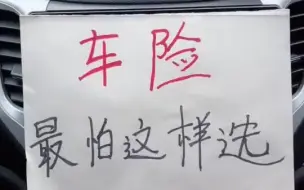 车险
最怕这样选